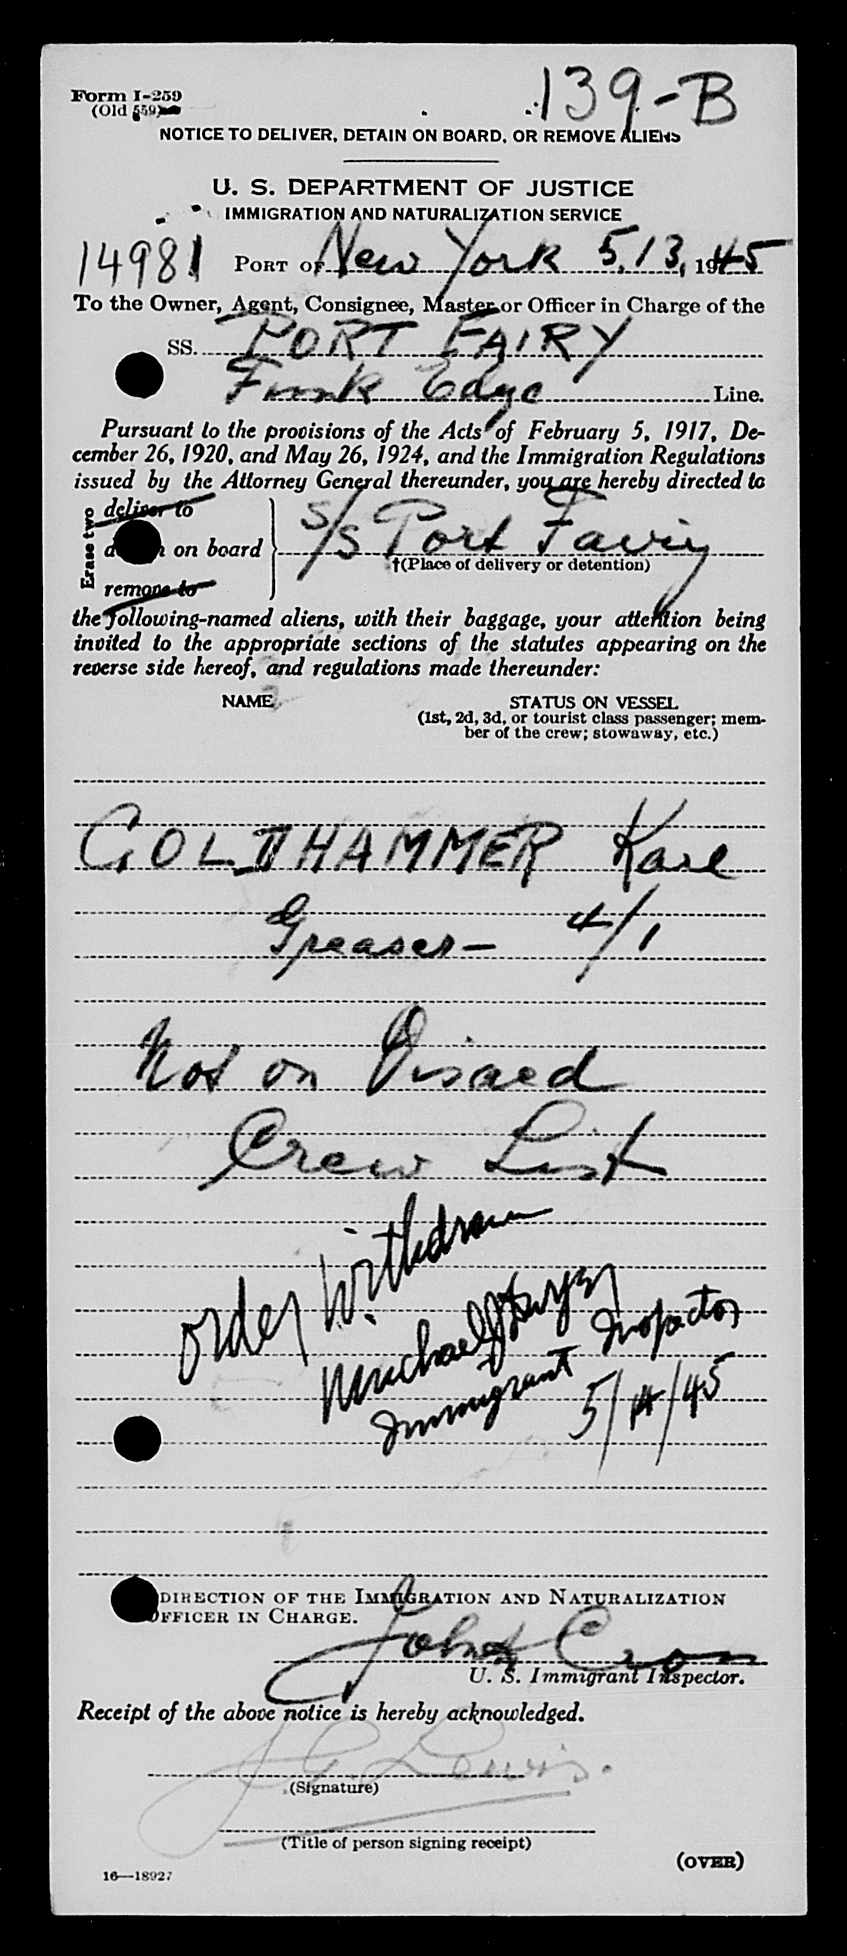 139-B
Form I-259
(Old 559)
NOTICE TO DELIVER, DETAIN ON BOARD, OR REMOVE ALIENS
U. S. DEPARTMENT OF JUSTICE
IMMIGRATION AND NATURALIZATION SERVICE
14981 PORT OF New York 5.13, 1945
To the Owner, Agent, Consignee, Master or Officer in Charge of the
SS. PORT FAIRY
Funk Edye Line.
Pursuant to the provisions of the Acts of February 5, 1917, De-
cember 26, 1920, and May 26, 1924, and the Immigration Regulations
issued by the Attorney General thereunder, you are hereby directed to
Erase two
deliver to
on board S/S Port Fairy
†(Place of delivery or detention)
remove to
the following-named aliens, with their baggage, your attention being
invited to the appropriate sections of the statutes appearing on the
reverse side hereof, and regulations made thereunder:
NAME STATUS ON VESSEL
(1st, 2d, 3d, or tourist class passenger; mem-
ber of the crew; stowaway, etc.)
GOLDHAMMER Karl
Greaser- 4/1
Not on Visaed
Crew List
Order Withdrawn
Michael J Dwyer
Immigrant Inspector
5/14/45
DIRECTION OF THE IMMIGRATION AND NATURALIZATION
OFFICER IN CHARGE.
John Cron
U. S. Immigrant Inspector.
Receipt of the above notice is hereby acknowledged.
J G Lewis.
(Signature)
(Title of person signing receipt)
(OVER)
16—18927